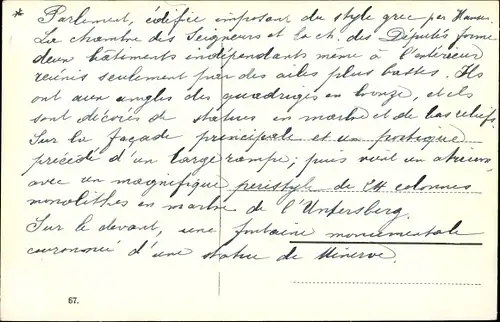 * Parlement, édifice imposant du style grec par Hansen
La chambre des Seigneurs et la ch. des Députés forme
deux bâtiments indépendants même à l'extérieur
réunis seulement par des ailes plus basses. Ils
ont aux angles des quadriges en bronze, et ils
sont décorés de statues en marbre et de bas reliefs
Sur la façade principale est un portique
précédé d'un large rampe; puis vient un atrium,
avec un magnifique peristyle de 24 colonnes
monolithes en marbre de l'Untersberg.
Sur le devant, une fontaine monumentale
couronnée d'une statue de Minerve.
67.